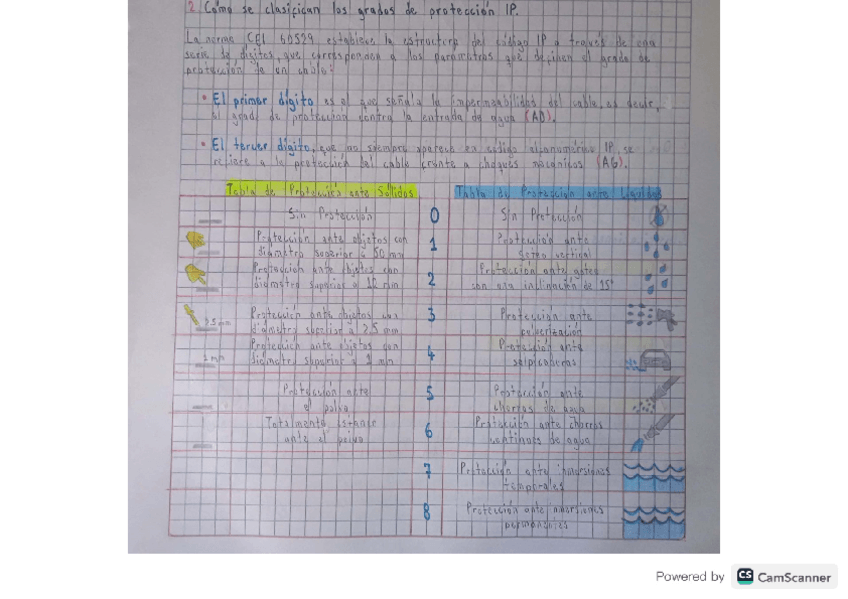 2. Cómo se clasifican los grados de protección IP.
La norma CEI 60529 establece la estructura del código IP a través de una
serie de dígitos, que corresponden a los parámetros que definen el grado de
protección de un cable:
• El primer dígito es el que señala la impermeabilidad del cable, es decir,
el grado de protección contra la entrada de agua (AD).
• El tercer dígito, que no siempre aparece en código alfanumérico IP, se
refiere a la protección del cable frente a choques mecánicos (AG).
Tabla de Protección ante Sólidos
Tabla de Protección ante Líquidos
Sin Protección 0 Sin Protección
Protección ante objetos con 1 Protección ante
diámetro superior a 50 mm goteo vertical
Protección ante objetos con 2 Protección ante goteo
diámetro superior a 12 mm con una inclinación de 15°
2.5 mm Protección ante objetos con 3 Protección ante
diámetro superior a 2.5 mm pulverización
1 mm Protección ante objetos con 4 Protección ante
diámetro superior a 1 mm salpicaduras
Protección ante 5 Protección ante
el polvo chorros de agua
Totalmente estanco 6 Protección ante chorros
ante el polvo continuos de agua
7 Protección ante inmersiones
temporales
8 Protección ante inmersiones
permanentes
Powered by CS CamScanner